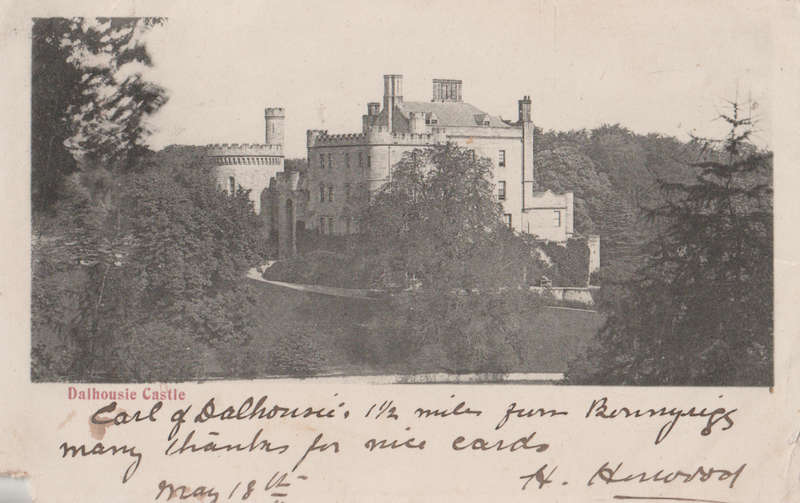 Dalhousie Castle
Earl of Dalhousie. 1½ miles from Bonnyrigg
many thanks for nice cards
May 18th H.